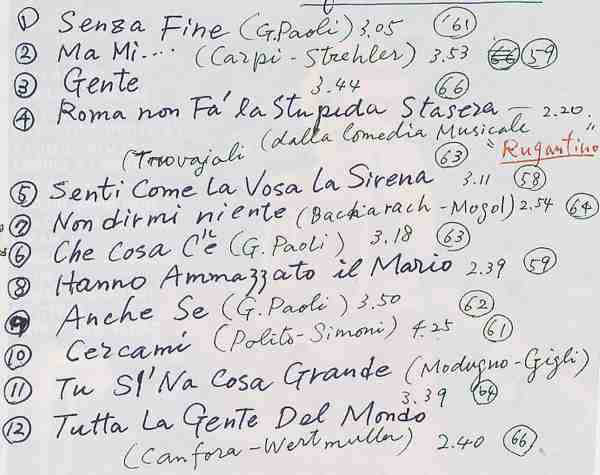 ① Senza Fine (G.Paoli) 3.05 ㊿61
② Ma Mi.... (Carpi - Strehler) 3.53 66 59
③ Gente 3.44 66
④ Roma non Fa' la Stupida Stasera — 2.20.
(Trovajali (dalla Comedia Musicale "Rugantino"
63
⑤ Senti Come La Vosa La Sirena 3.11 58
⑦ Non dirmi niente (Bacharach - Mogol) 2.54 64
⑥ Che Cosa C'è (G.Paoli) 3.18 63
⑧ Hanno Ammazzato il Mario 2.39 59
⑨ Anche Se (G.Paoli) 3.50 62
⑩ Cercami (Polito-Simoni) 4.25 61
⑪ Tu SI' Na Cosa Grande (Modugno-Gigli)
3.39 64
⑫ Tutta La Gente Del Mondo
(Canfora - Wertmuller) 2.40 66